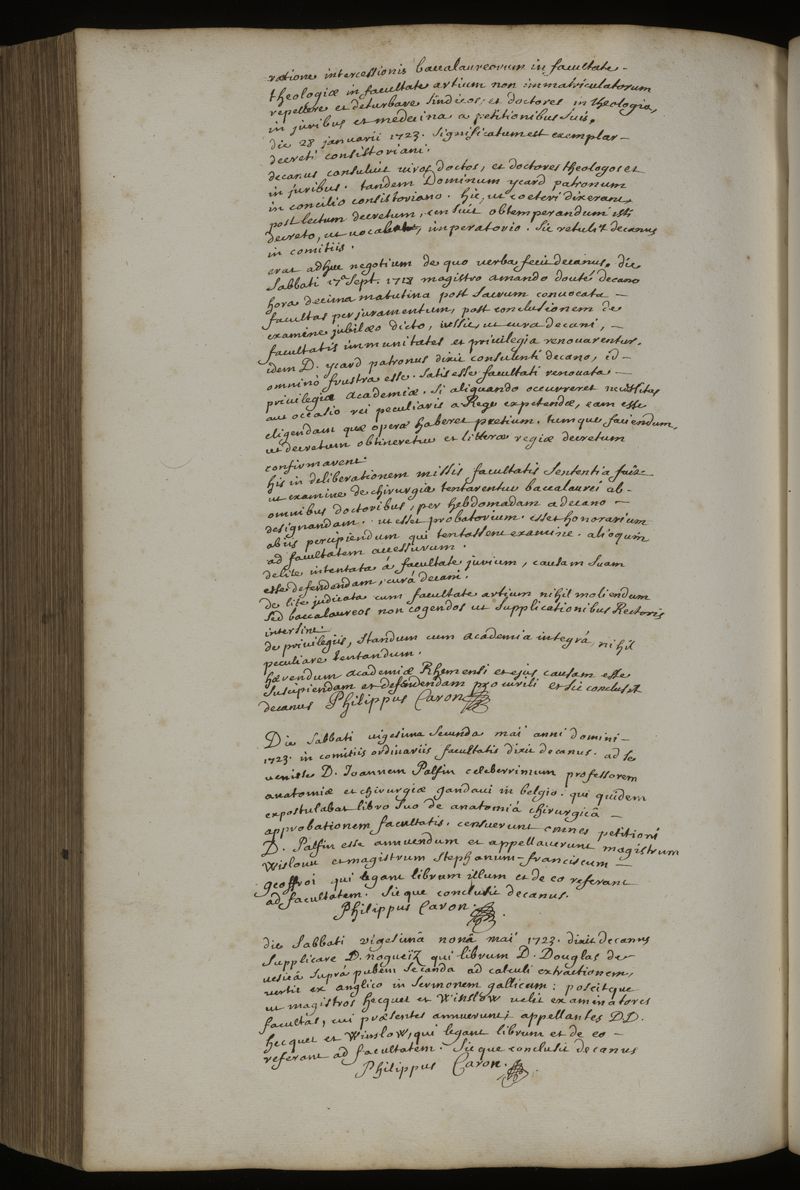 ratione intercessionis baccalaureorum in facultate -
theologiæ in facultate artium non immatriculatorum
repellere et deturbare sindicos, et doctores in theologia,
in juribus et medecina a petitionibus suis.
die 28 januarii 1723. significatum est exemplar -
decreti consistoriani.
decanus consuluit viros doctos, et doctores theologos et
in juribus. tandem Dominum ycard patronum
in concilio consistoriano. hic, ut coeteri dixerant
post lectum decretum, censuit obtemperandum isti
decreto, ut vocabatur, imperatorio. sic retulit decanus
in comitiis.
erat adhuc negotium de quo verba fecit decanus. die
sabbati 17a sept. 1718 magistro amando douté decano
hora decima matutina post sacrum convocata -
facultas per juramentum, post conclusionem de
examine jubilæo dicto, iussit, ut cura decani, -
facultatis immunitates et privilegia renovarentur.
idem D. ycard patronus dixit consulenti decano, id -
omninò frustra esse. satis esse facultati renovata -
privilegia academiæ. si aliquando occurreret necessitas
aut occasio rei peculiaris a Rege expetendæ, eam esse
eligendam quæ opera haberet pretium. tumque faciendum,
ut decretum obtineretur et litteræ regiæ decretum
confirmarent.
his in deliberationem missis facultatis sententia fuit
ut examine de chirurgia tentarentur baccalaurei ab -
omnibus doctoribus, per hebdomadam a decano -
designandam. ut esset probatorium. esset honorarium
ab iis percipiendum qui tentassent examine. alioquin
ad facultatem accessurum.
de lite intentata á facultate jurium, causam suam
esse defendendam, curâ decani.
de lite judicata cum facultate artium nihil moliendum
sed baccalaureos non cogendos ut supplicationibus Rectoris
intersint.
de privilegiis, standum cum academia integrâ, nihil
peculiare tentandum.
favendum academiæ Rhemensi et ejus causam esse
suscipiendam et defendendam pro virili et sic conclusit
decanus Philippus Caron
Die sabbati vigesima secunda mai anni domini -
1723. in comitiis ordinariis facultatis dixit decanus. ad se
venisse D. Joannem Palfin celeberrimum professorem
anatomiæ et chirurgiæ gandavi in belgio. qui quidem
expostulabat libro suo de anatomiâ chirurgicâ -
approbationem facultatis. censuerunt omnes petitioni
D. Palfin esse annuendum et appellaverunt magistrum
Wislouu et magistrum stephanum-franciscum -
geoffroi qui legant librum illum et de eo referant
ad facultatem. Sic que conclusit decanus.
Philippus Caron.
die sabbati vigesimâ nonâ mai 1723. dixit decanus
supplicare D. nogueiz qui librum D. Douglas de
vesicâ suprà pubem secanda ad calculi extractionem,
vertit ex anglico in sermonem gallicum: poscitque
ut magistros hecquet et Winslow velit examinatores
facultas, cui præsentes annuerunt; appellantes DD.
hecquet et Winslow, qui legant librum et de eo -
referant ad facultatem. Sic que conclusit decanus
Philippus Caron.